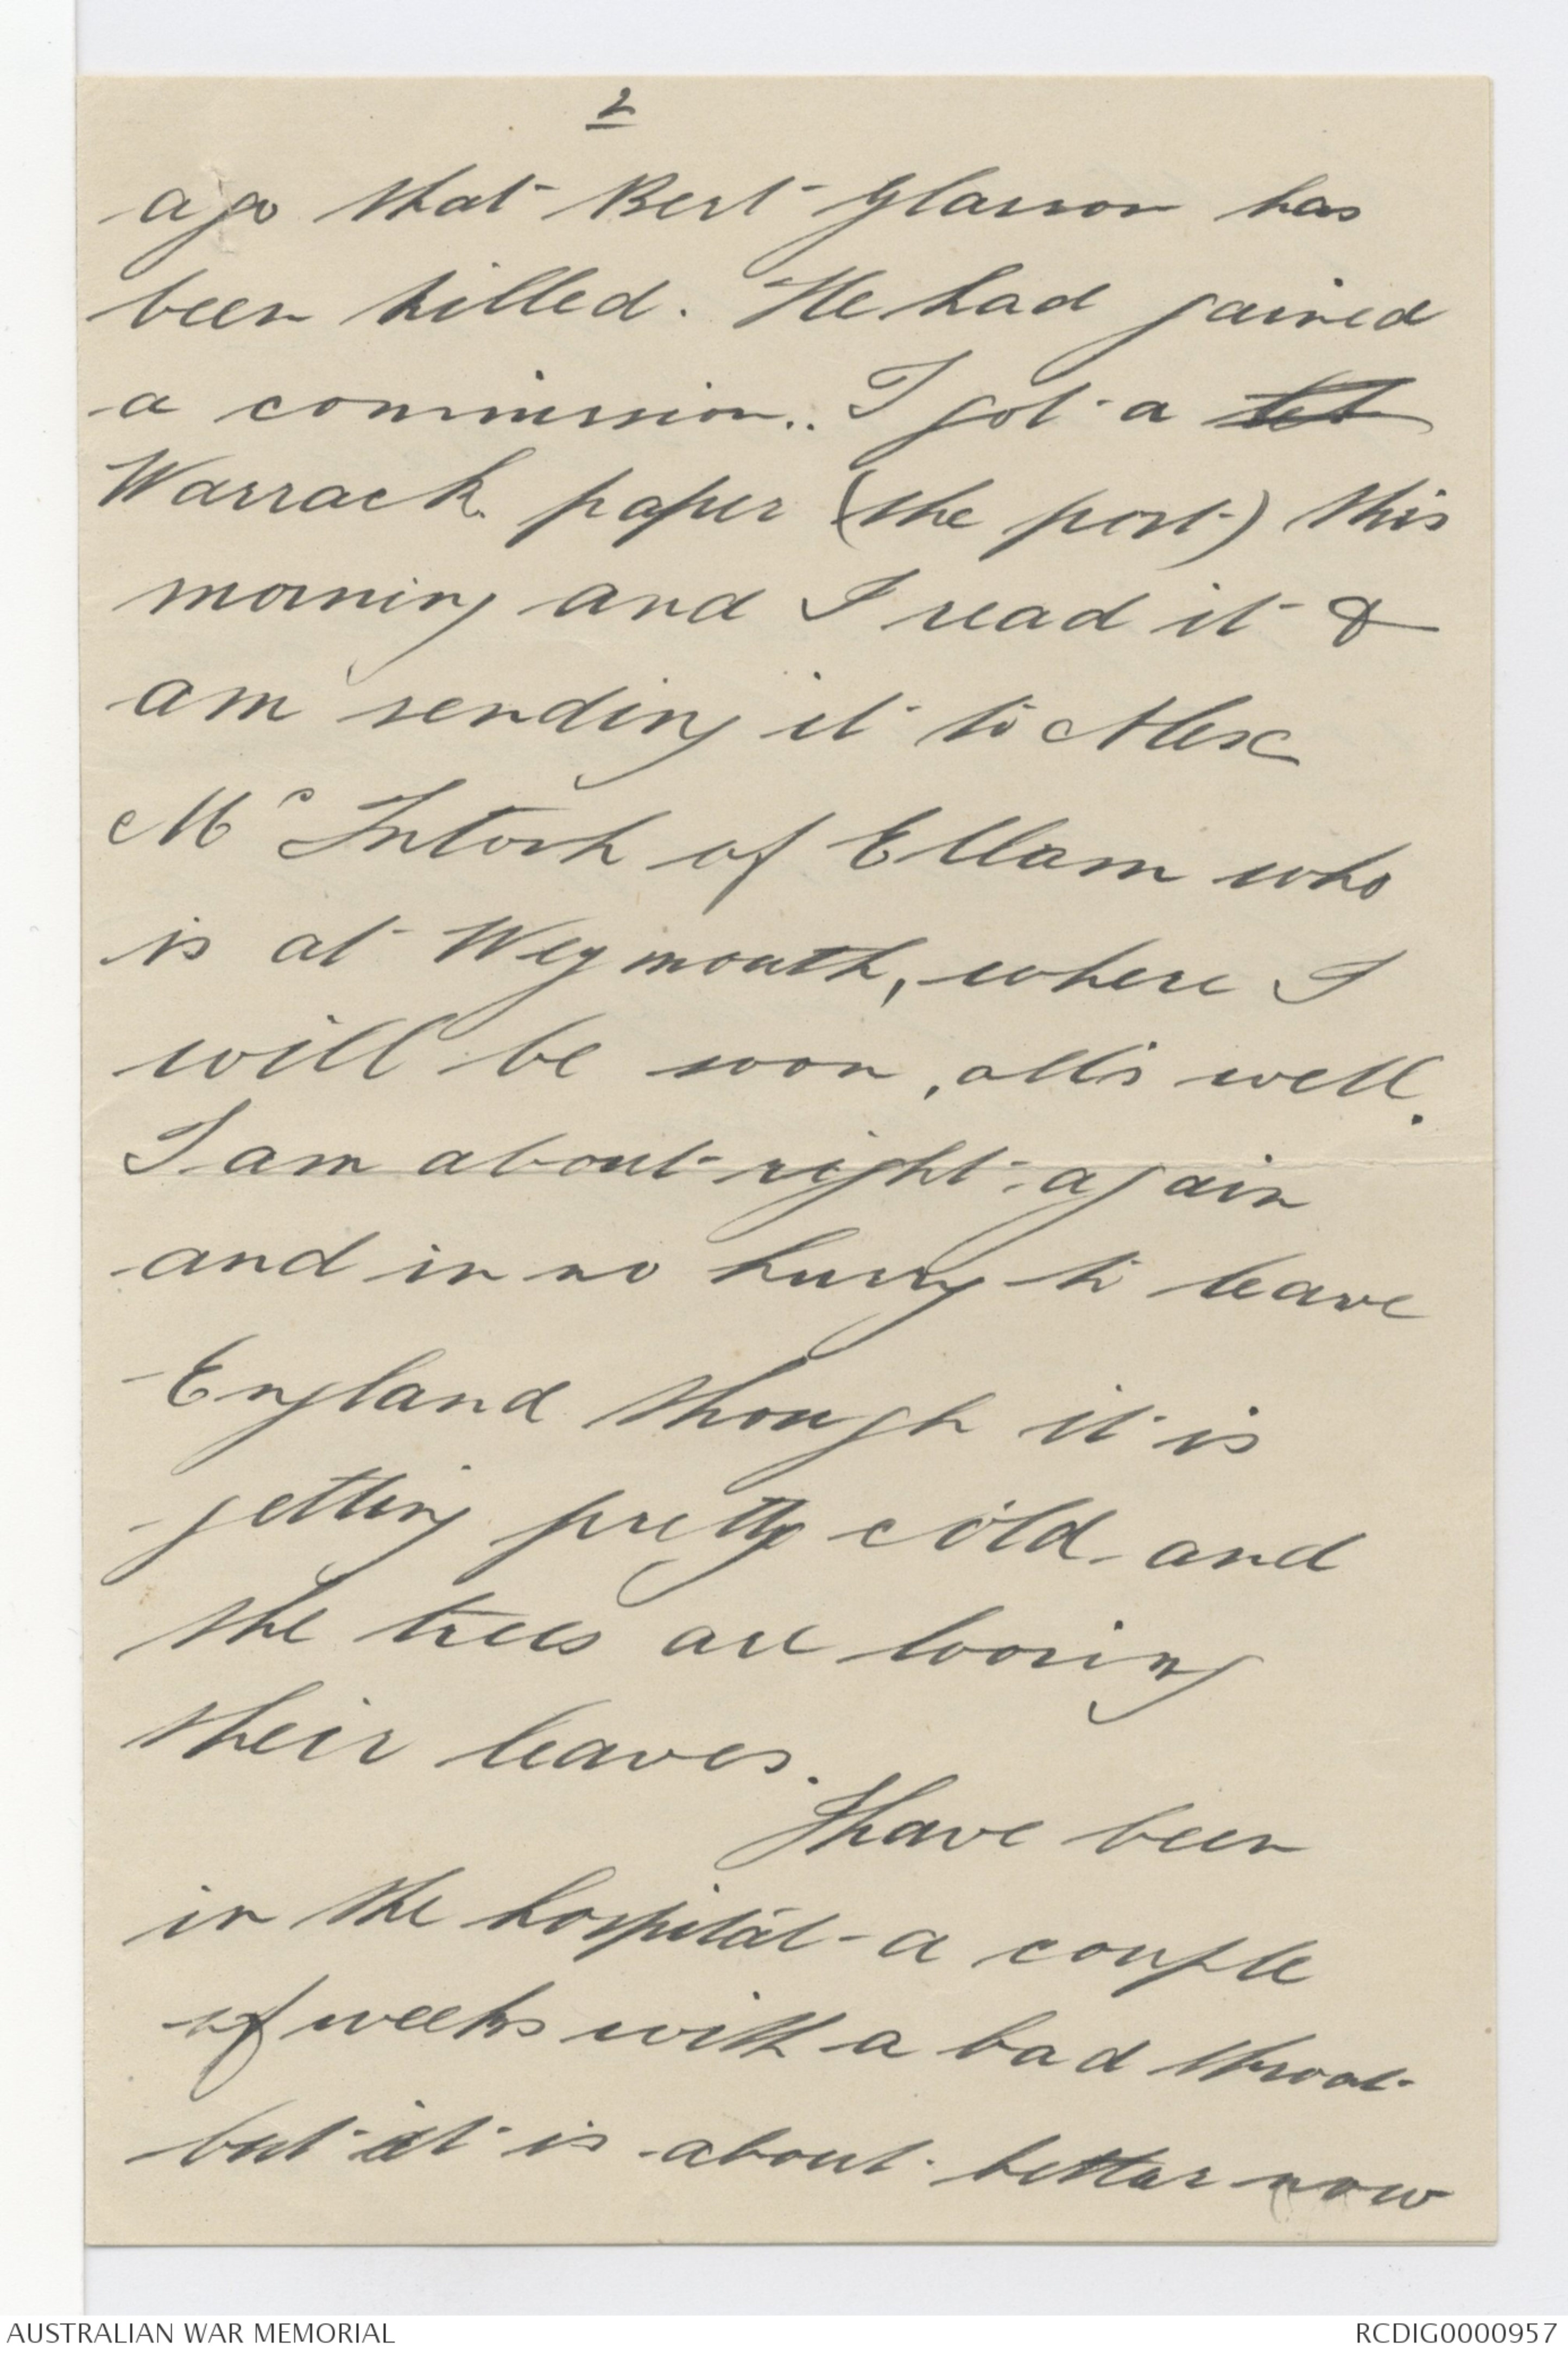 2
ago that Bert Glasson has
been killed. He had gained
a commission.. I got a let
Warrack paper (the post) this
morning and I read it &
am sending it to Alex
Mc Intosh of Ellam who
is at Weymouth, where I
will be soon, all's well.
I am about right again
and in no hurry to leave
England though it is
getting pretty cold and
the trees are loosing
their leaves.
I have been
in the hospital a couple
of weeks with a bad throat
but it is about better now
AUSTRALIAN WAR MEMORIAL
RCDIG0000957